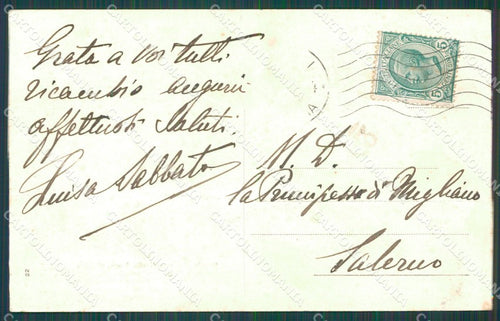 Grata a voi tutti
ricambio auguri
affettuosi saluti.
Luisa Sabbato
N. D.
la Principessa di Migliano
Salerno
5 5
22
CARTOLINOMANIA